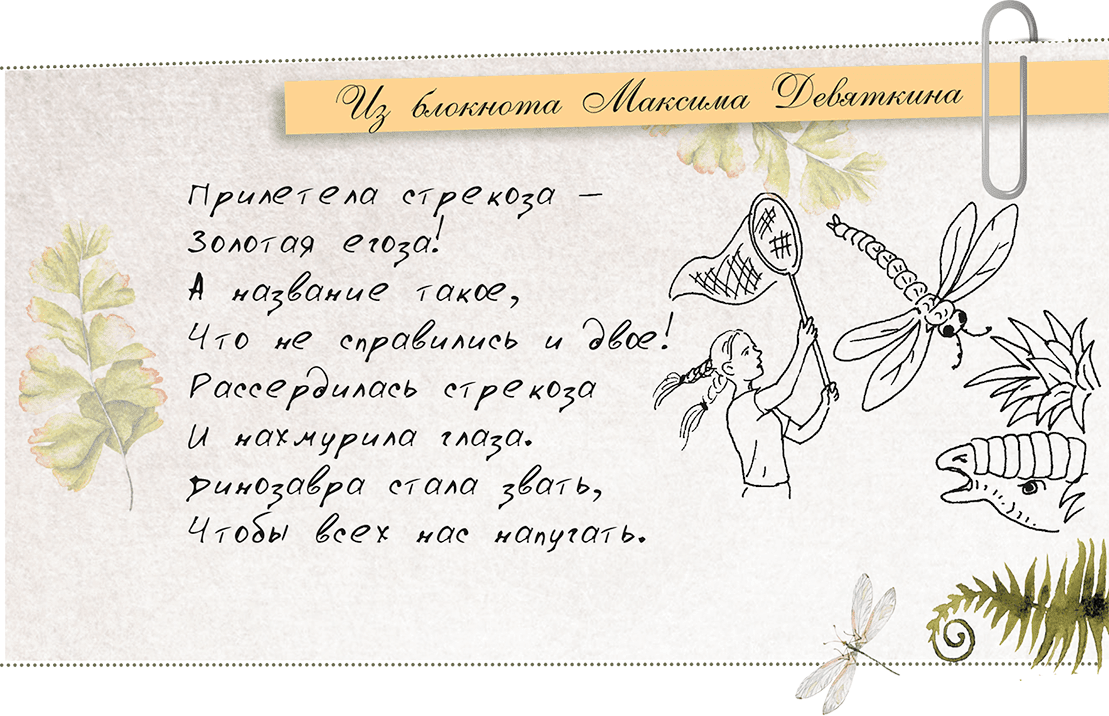 Из блокнота Максима Девяткина
Прилетела стрекоза –
Золотая егоза!
А название такое,
Что не справились и двое!
Рассердилась стрекоза
И нахмурила глаза.
Динозавра стала звать,
Чтобы всех нас напугать.